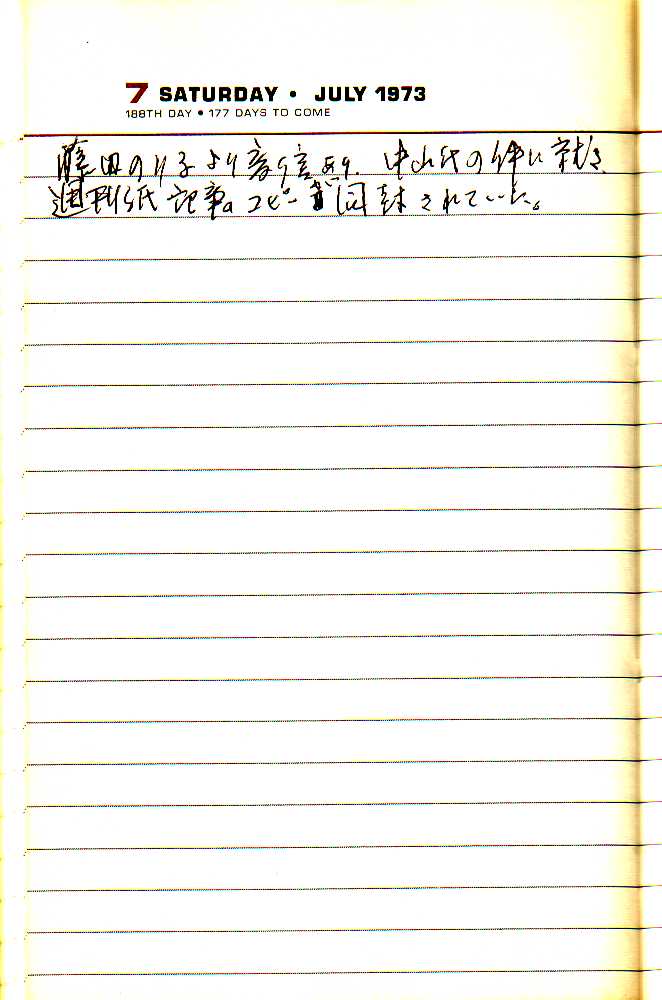 7 SATURDAY • JULY 1973
188TH DAY • 177 DAYS TO COME
藤田のり子より来信あり、中山氏の件に就き、
週刊紙記事のコピー 同封されていた。